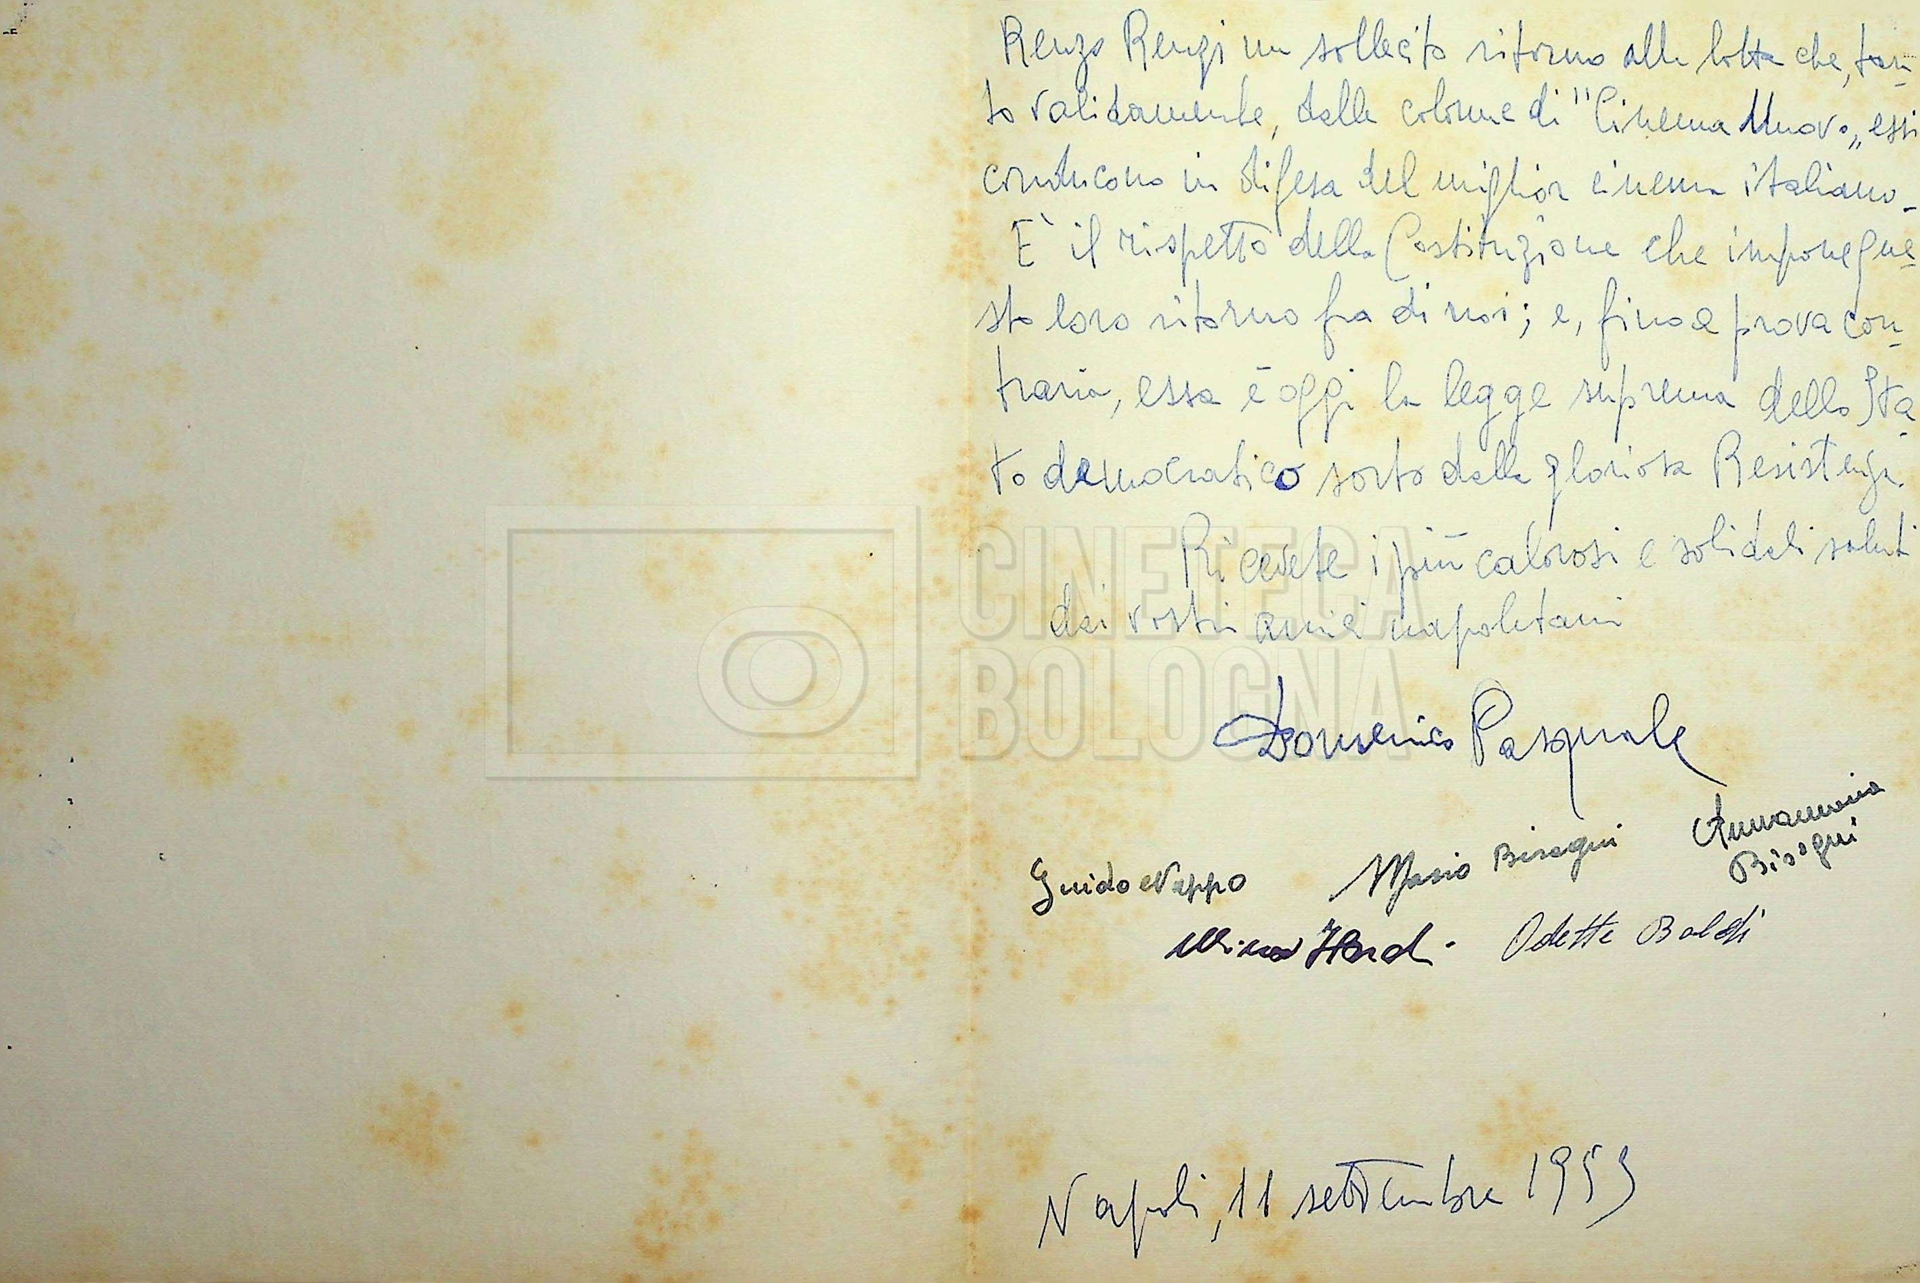 Renzo Renzi un sollecito ritorno alla lotta che, tan-
to validamente, dalle colonne di "Cinema Nuovo„ essi
conducono in difesa del miglior cinema italiano.
È il rispetto della Costituzione che impone que-
sto loro ritorno fra di noi; e, fino a prova con-
traria, essa è oggi la legge suprema dello Sta-
to democratico sorto dalla gloriosa Resistenza.
Ricevete i più calorosi e solidali saluti
dai vostri amici napoletani
CINETECA
BOLOGNA
Domenico Pasquale
Annamaria
Guido Nappo Mario Bisogni Bisogni
Odette Baldi
Napoli, 11 settembre 1953